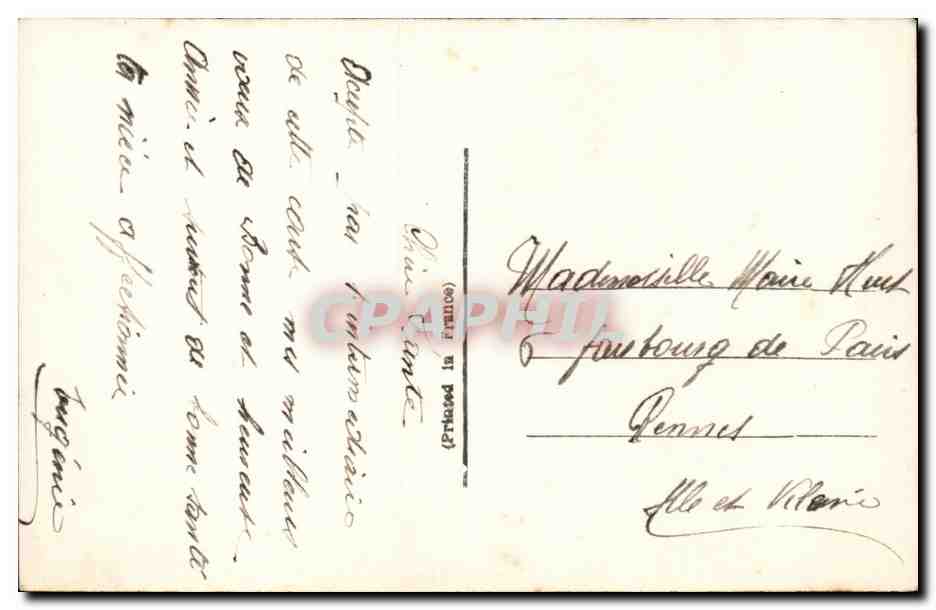 Chère Tante
Accepte par l'intermédiaire
de cette carte mes meilleurs
vœux de Bonne et heureuse
Année et surtout de bonne santé
ta nièce affectionnée
Eugénie
(Printed in France)
Mademoiselle Marie Huet
6 faubourg de Paris
Rennes
Ille et Vilaine
CPAPHIL